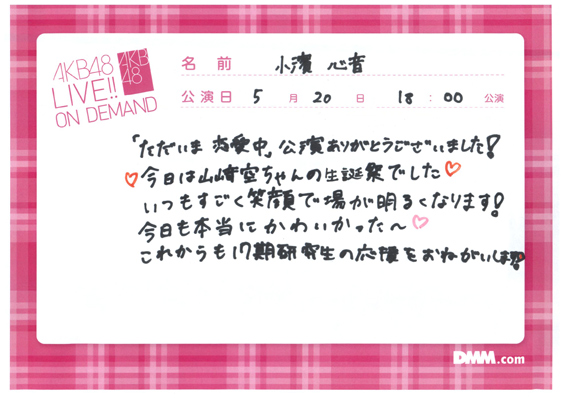 AKB48
LIVE!!
ON DEMAND
AKB
48
名前 小濱 心音
公演日 5月20日 18:00公演
「ただいま 恋愛中」公演ありがとうございました!
♡今日は山﨑空ちゃんの生誕祭でした♡
いつもすごく笑顔で場が明るくなります!
今日も本当にかわいかった〜♡
これからも17期研究生の応援をおねがいします!
DMM.com